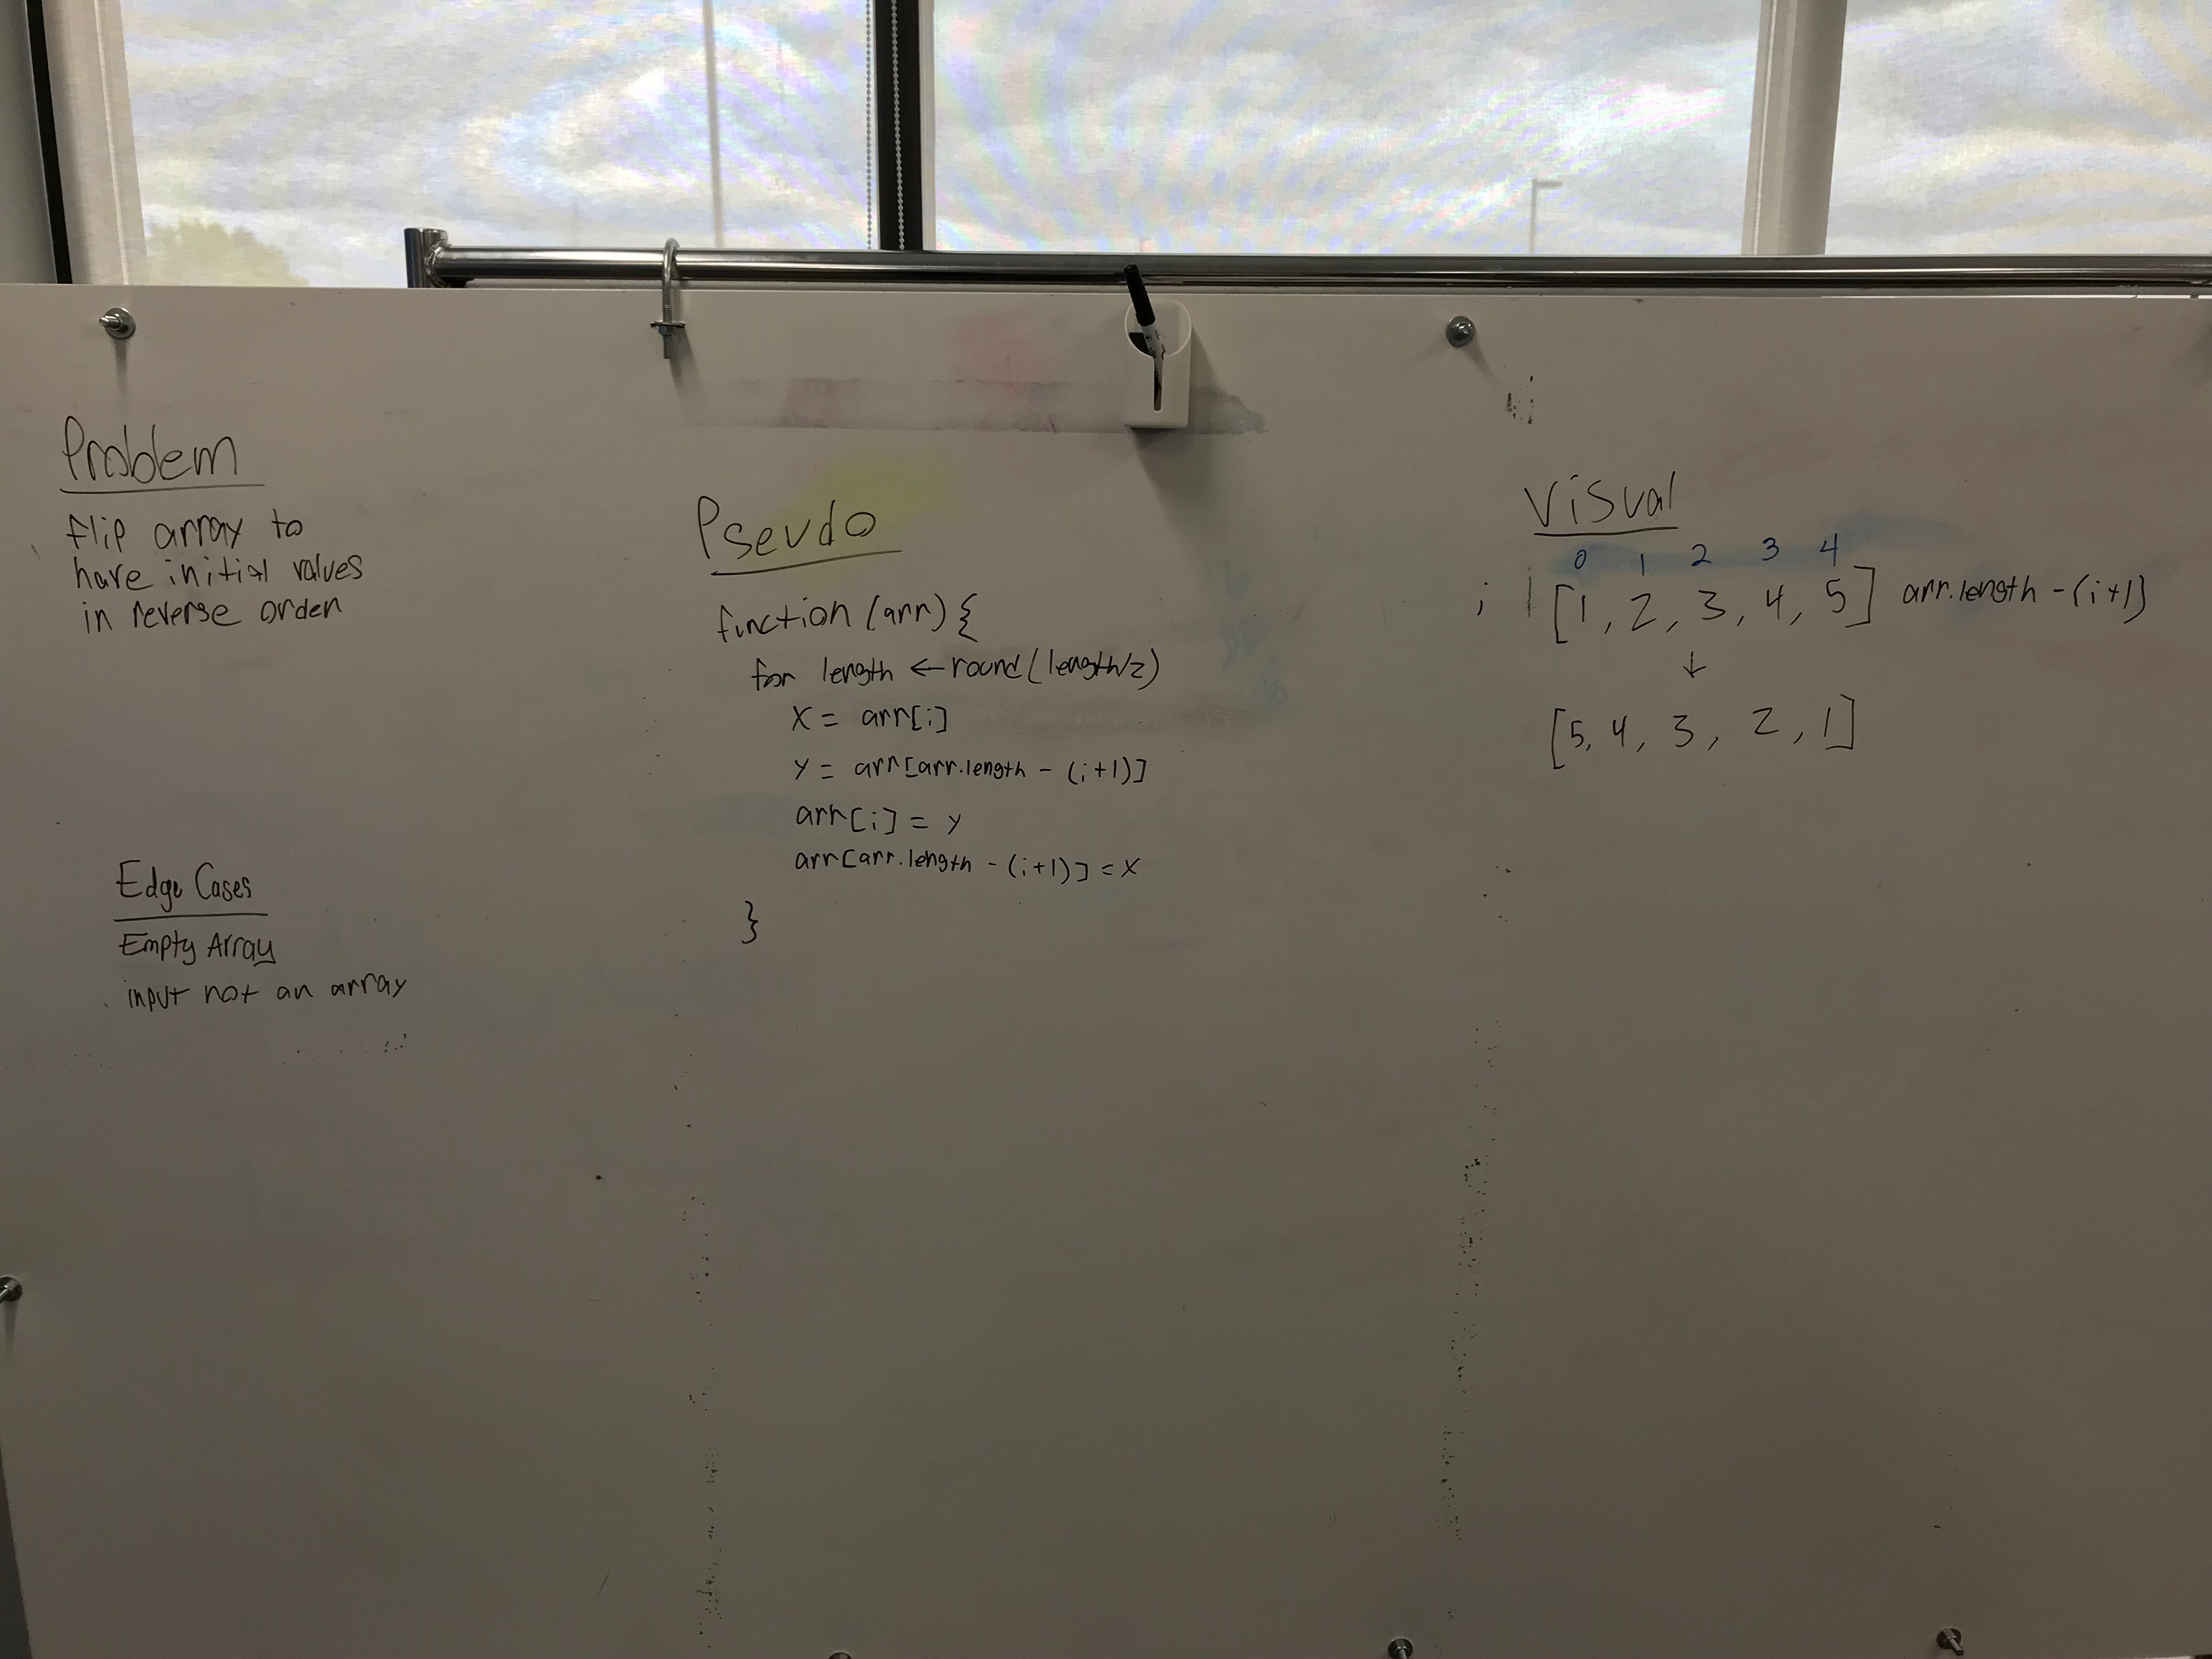 Problem
flip array to
have initial values
in reverse order
Edge Cases
Empty Array
input not an array
Psevdo
function (arr) {
for length ← round(length/2)
x = arr[i]
y = arr[arr.length - (i+1)]
arr[i] = y
arr[arr.length - (i+1)] = x
}
Visual
0 1 2 3 4
i [1, 2, 3, 4, 5] arr.length - (i+1)
↓
[5, 4, 3, 2, 1]